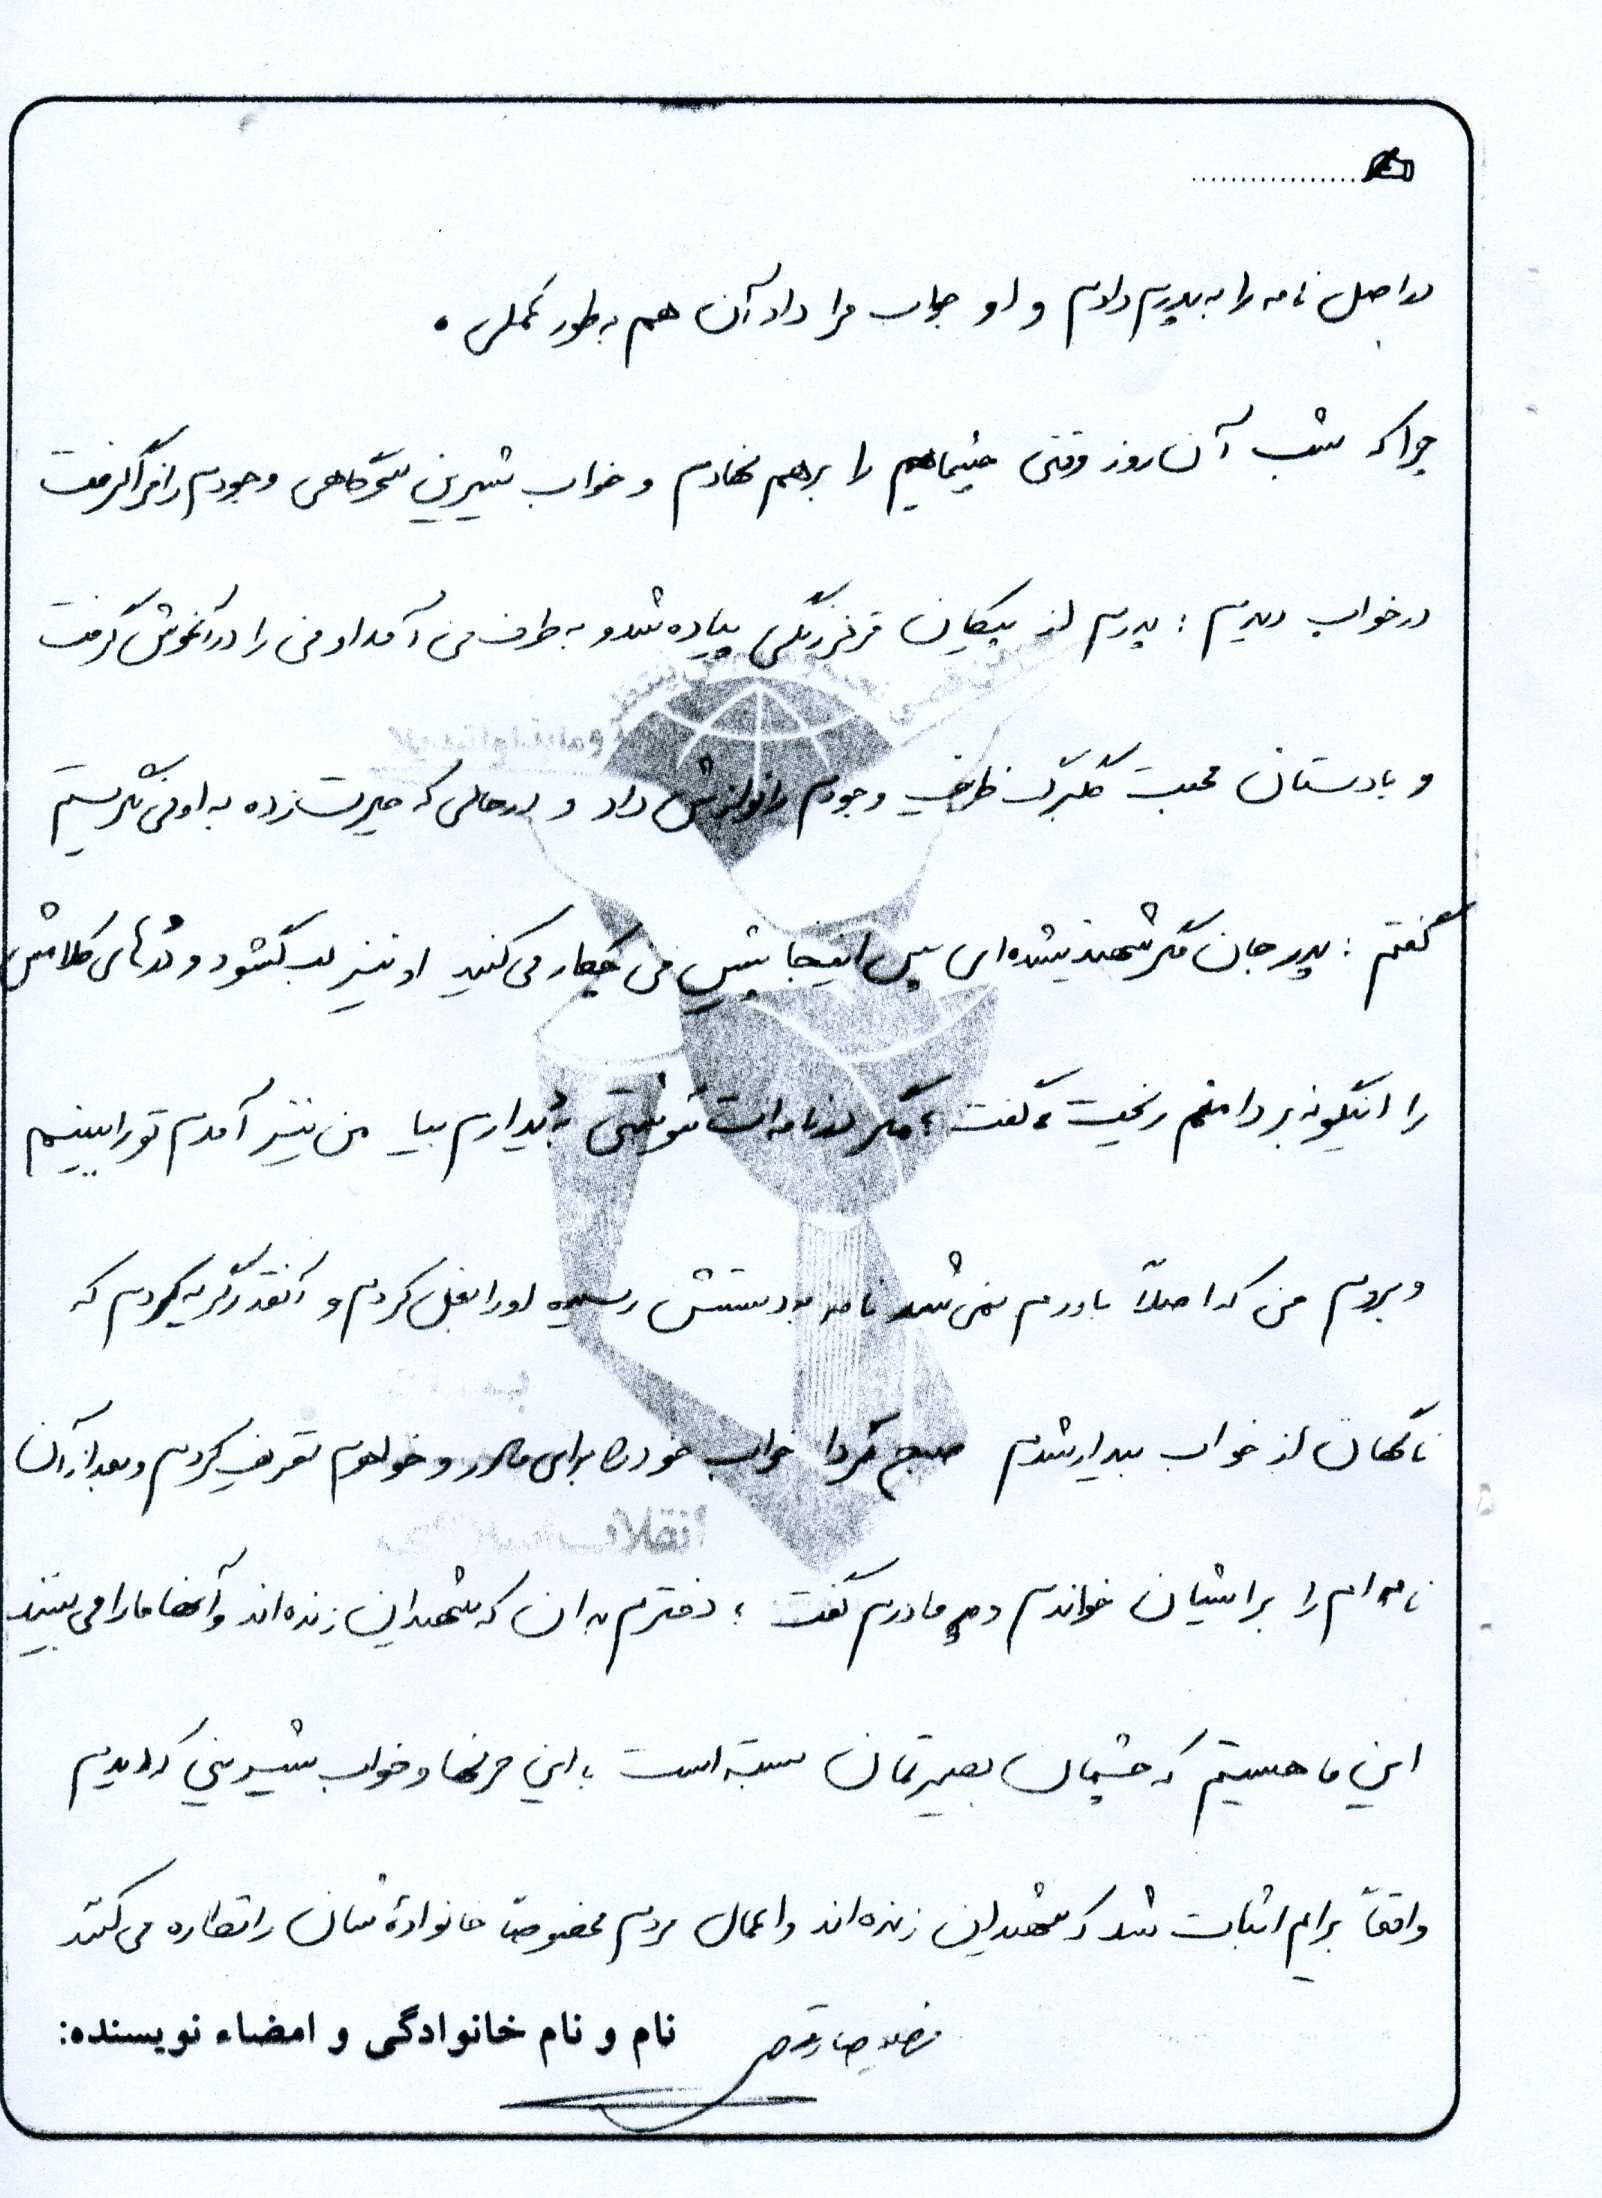 در اصل نامه را به پدرم دادم و او جواب مرا داد آن هم به طور عملی .
چرا که شب آن روز وقتی چشمهایم را برهم نهادم و خواب شیرین سحرگاهی وجودم را فرا گرفت
در خواب دیدم : پدرم از پیکان قرمز رنگی پیاده شد و به طرف من آمد او من را در آغوش گرفت
و با دستان محبت گلبرگ ظریف وجودم را نوازش داد و در حالی که حیرت زده به او می نگریستم
گفتم : پدر جان مگر شهید نشده ای پس اینجا پیش من چکار می کنید او نیز لب گشود و دُرهای کلامش
را اینگونه بر دامنم ریخت ، گفت ؛ مگر در نامه ات ننوشتی به دیدارم بیا من نیز آمدم تو را ببینم
و بروم من که اصلاً باورم نمی شد نامه به دستش رسیده او را بغل کردم و آنقدر گریه کردم که
ناگهان از خواب بیدار شدم صبح فردا خواب خود را برای مادر و خواهرم تعریف کردم و بعد از آن
نامه ام را برایشان خواندم مادرم گفت ؛ دخترم بدان که شهیدان زنده اند و آنها ما را می بینند
این ما هستیم که چشمان بصیرتمان بسته است با این حرفها و خواب شیرینی که دیدم
واقعاً برایم اثبات شد که شهیدان زنده اند و اعمال مردم مخصوصاً خانوادهٔ شان را نظاره می کنند
نام و نام خانوادگی و امضاء نویسنده:
انقلاب